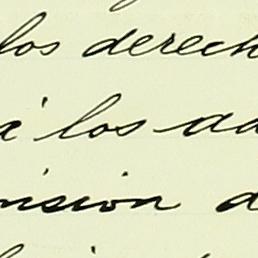 los derech
a los ad
ision d